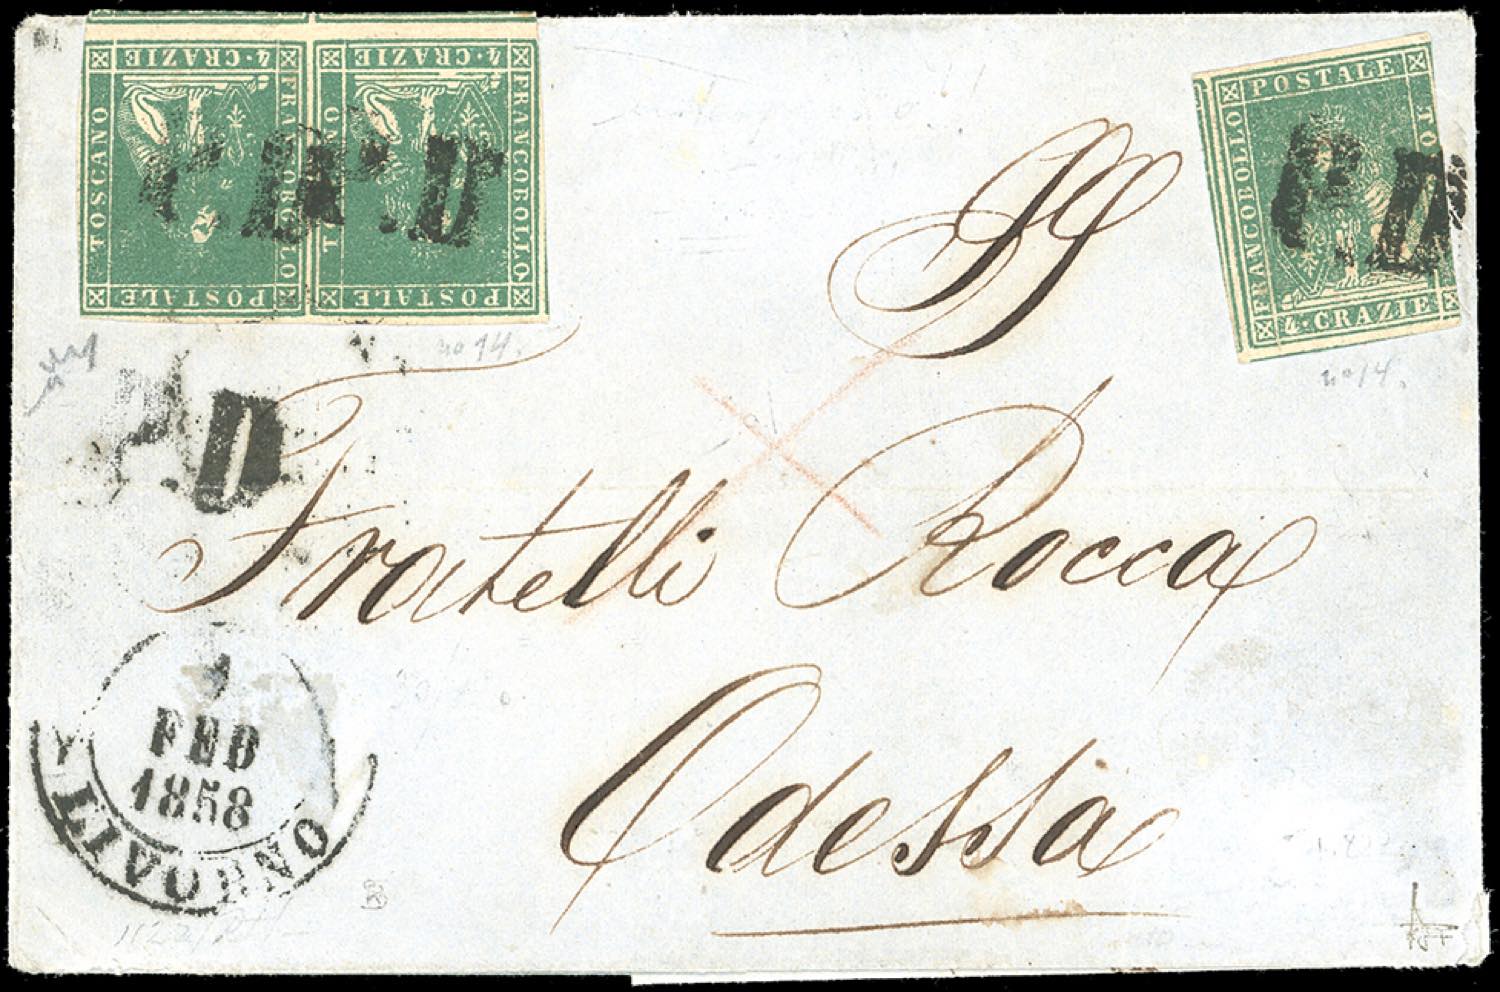 4·CRAZIE
FRANCOBOLLO
POSTALE
TOSCANO
4·CRAZIE
FRANCOBOLLO
POSTALE
P.D
P.D
POSTALE
FRANCOBOLLO
4·CRAZIE
P.D
no 14.
no 14.
Fratelli Rocca
Odessa
1
FEB
1858
LIVORNO